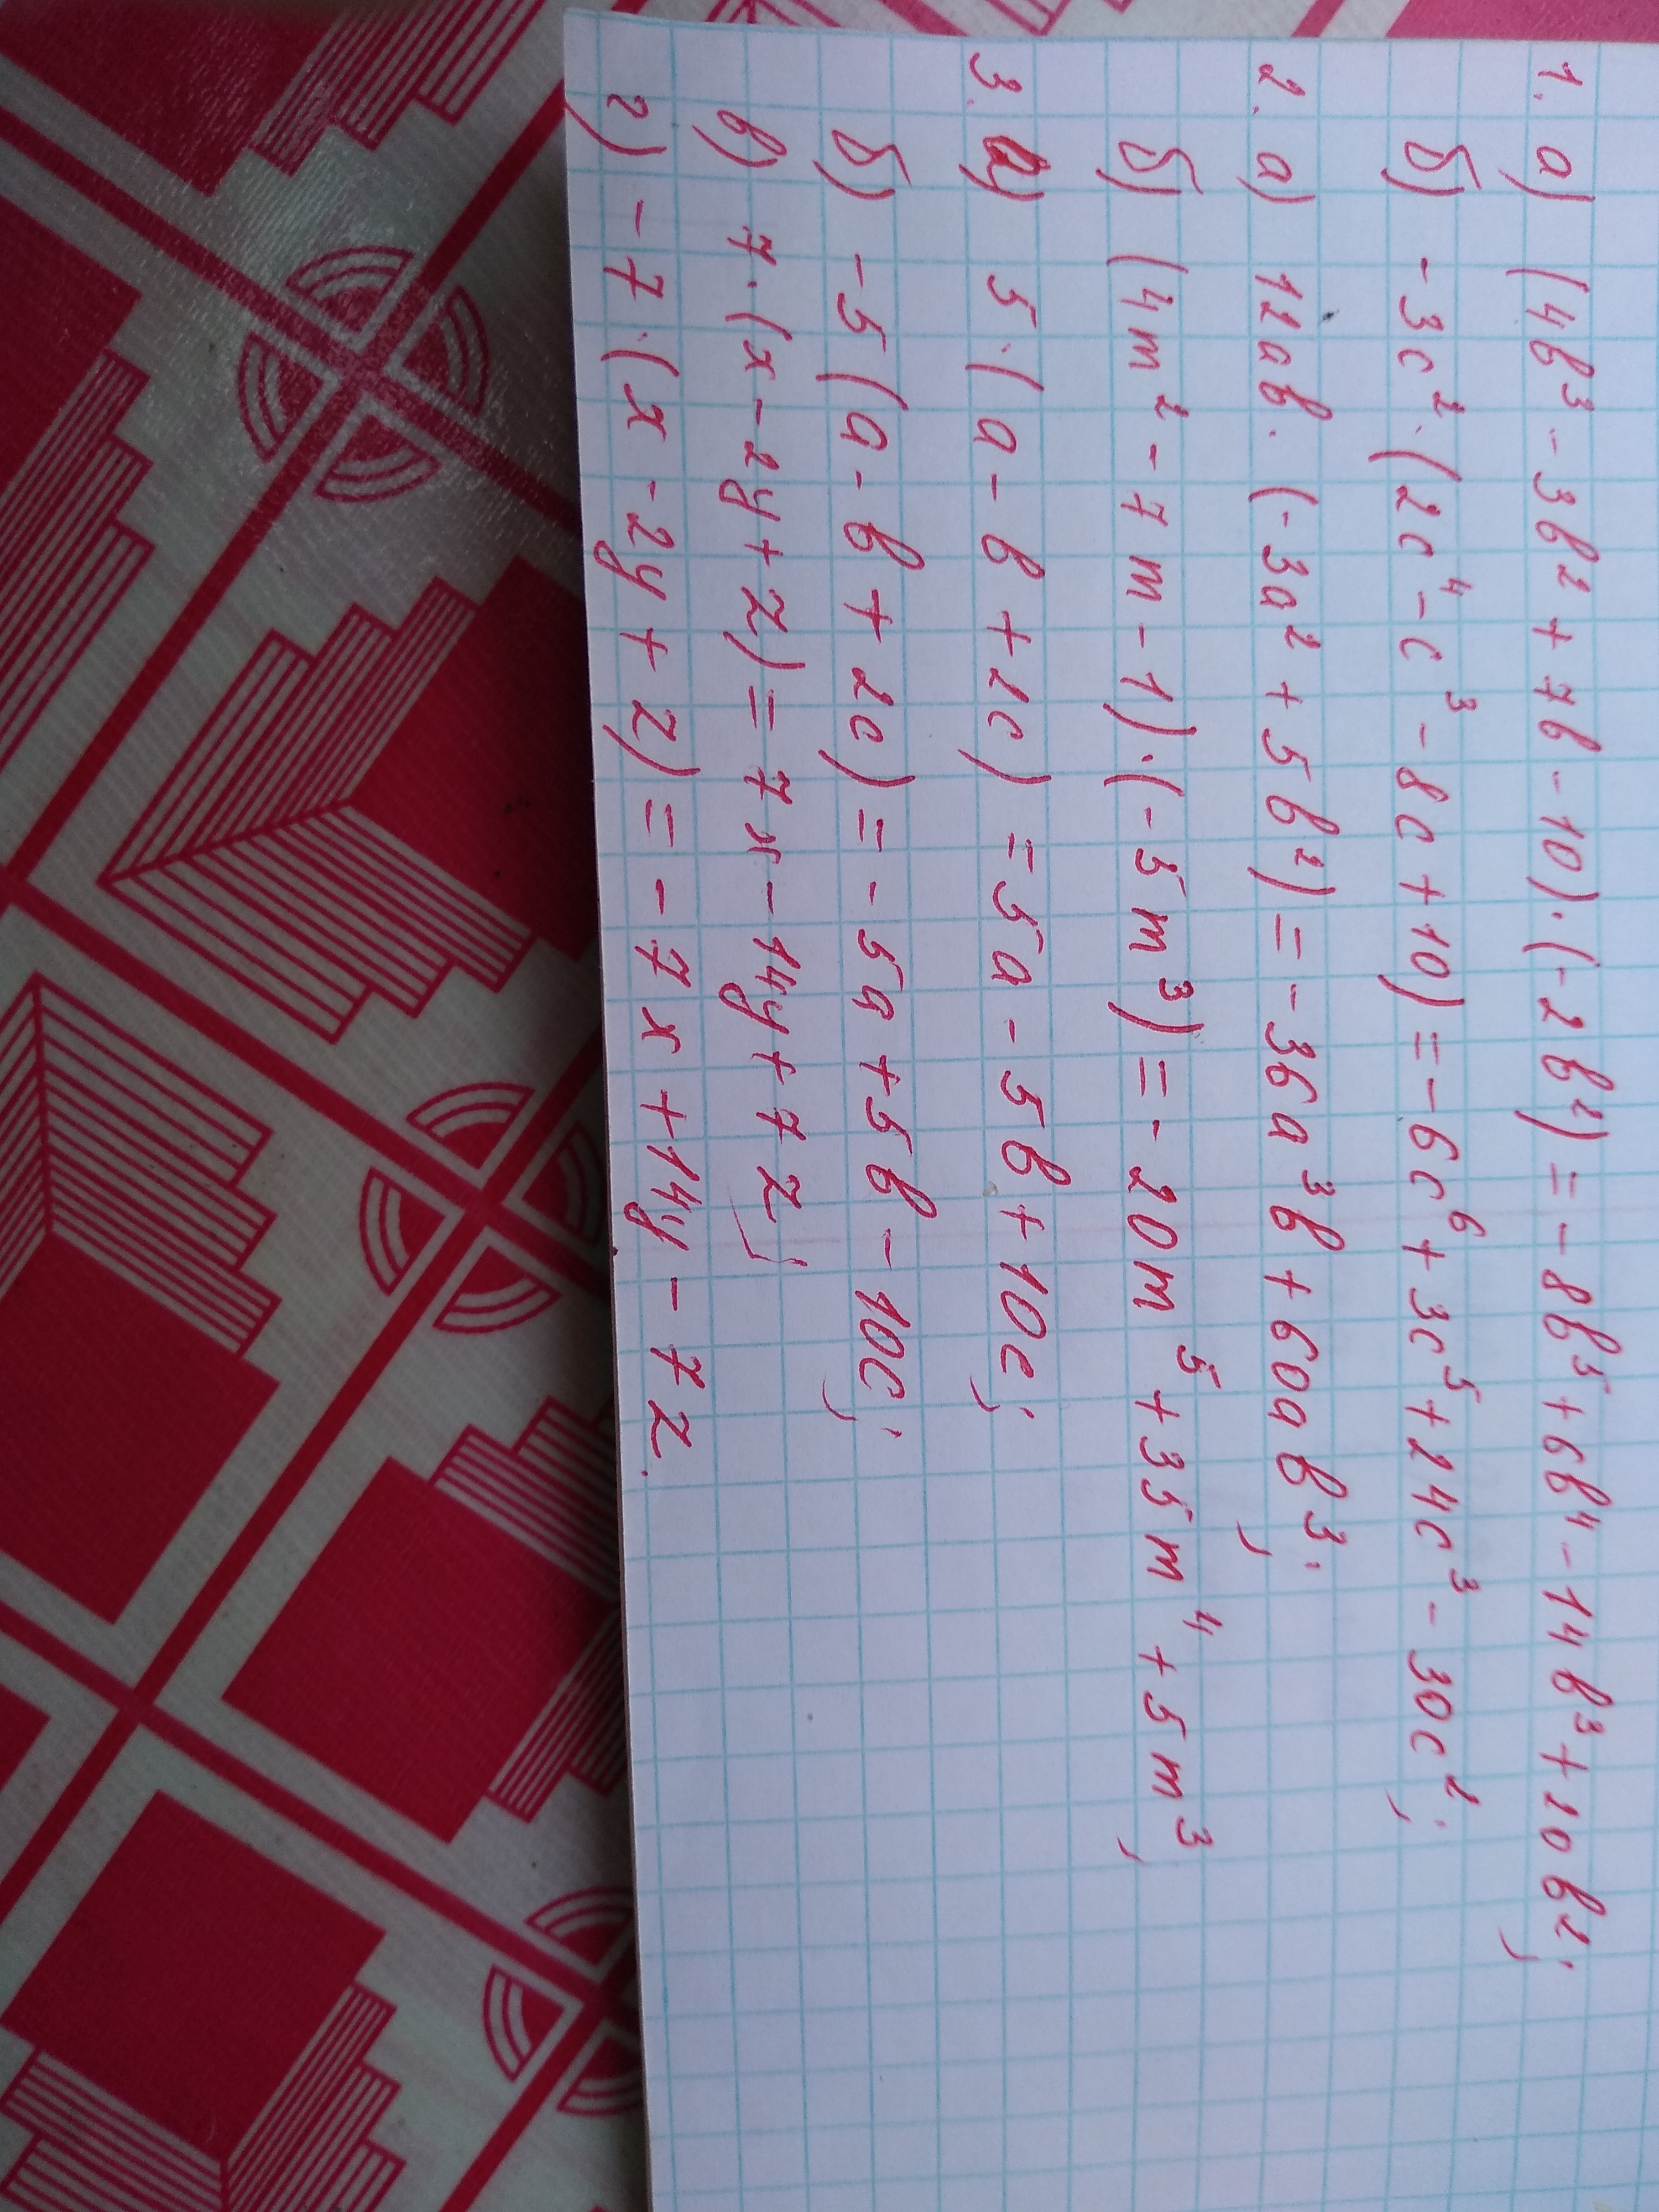 1. а) (4b³ - 3b² + 7b - 10)·(-2b²) = -8b⁵ + 6b⁴ - 14b³ + 20b²;
б) -3c²·(2c⁴ - c³ - 8c + 10) = -6c⁶ + 3c⁵ + 24c³ - 30c²;
2. а) 12ab·(-3a² + 5b²) = -36a³b + 60ab³;
б) (4m² - 7m - 1)·(-5m³) = -20m⁵ + 35m⁴ + 5m³,
3. а) 5·(a - b + 2c) = 5a - 5b + 10c;
б) -5(a - b + 2c) = -5a + 5b - 10c;
в) 7·(x - 2y + z) = 7x - 14y + 7z;
г) -7·(x - 2y + z) = -7x + 14y - 7z.